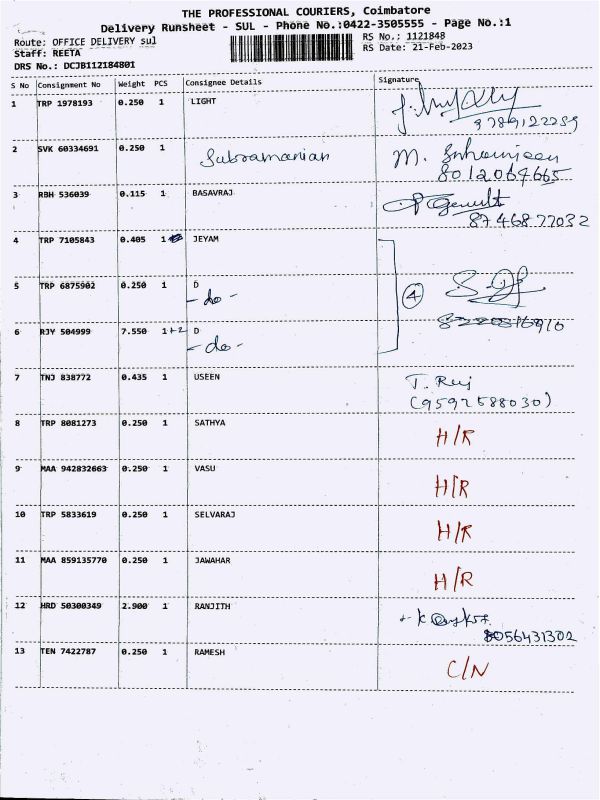 THE PROFESSIONAL COURIERS, Coimbatore
Delivery Runsheet - SUL - Phone No.:0422-3505555 - Page No.:1
Route: OFFICE DELIVERY sul
Staff: REETA
DRS No.: DCJB112184801
RS No.: 1121848
RS Date: 21-Feb-2023
S No Consignment No Weight PCS Consignee Details Signature
1 TRP 1978193 0.250 1 LIGHT
9789122259
2 SVK 60334691 0.250 1 Subramanian M.
8012064665
3 RBH 536039 0.115 1 BASAVRAJ
8746877032
4 TRP 7105843 0.405 1 JEYAM
5 TRP 6875902 0.250 1 D
- do - 4
6 RJY 504999 7.550 1+2 D
- do -
7 TNJ 838772 0.435 1 USEEN T. Raj
(9592588030)
8 TRP 8081273 0.250 1 SATHYA H/R
9 MAA 942832663 0.250 1 VASU H/R
10 TRP 5833619 0.250 1 SELVARAJ H/R
11 MAA 859135770 0.250 1 JAWAHAR H/R
12 HRD 50300349 2.900 1 RANJITH
8056431302
13 TEN 7422787 0.250 1 RAMESH C/N